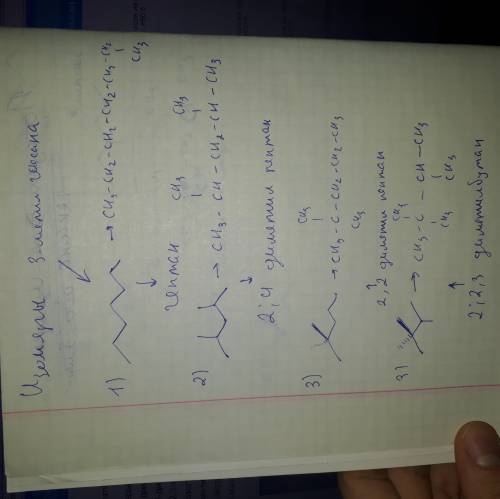 Изомеры 3-метил гексана
1) → CH3-CH2-CH2-CH2-CH2-CH2
CH3
гептан
CH3 CH3
2) → CH3-CH-CH2-CH-CH3
2;4 диметил пентан
CH3
3) → CH3-C-CH2-CH2-CH3
CH3
2,2 диметил пентан
CH3
3) → CH3-C-CH-CH3
CH3 CH3
2;2;3 диметилбутан